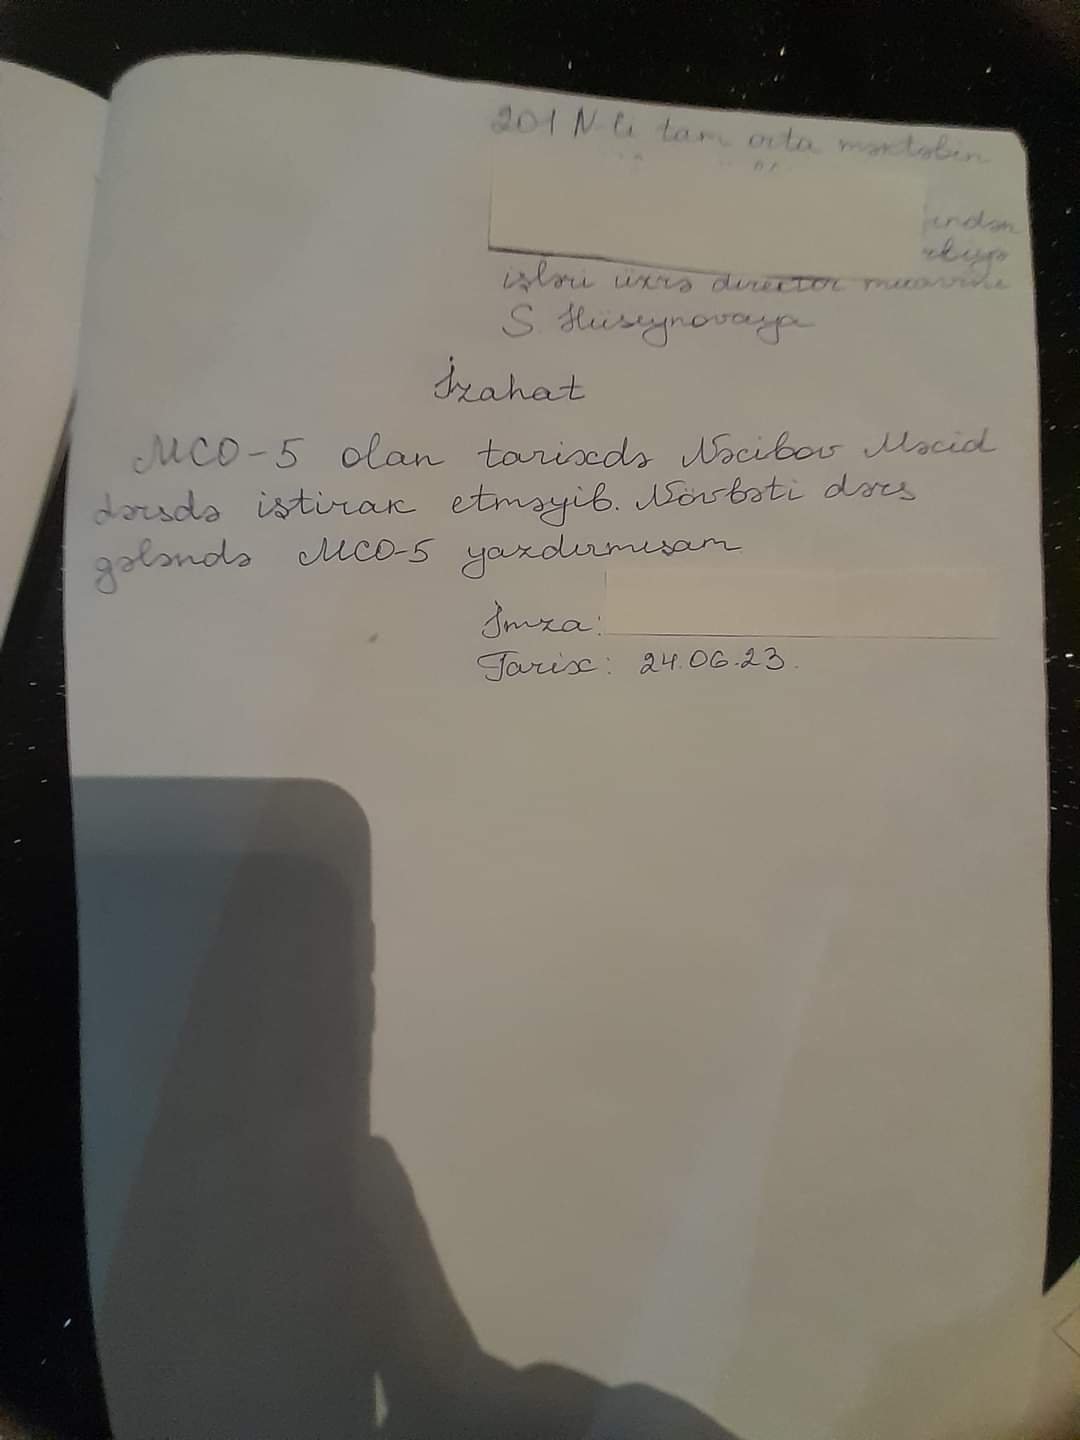 201 N-li tam orta məktəbin
işləri üzrə director muavini
S. Hüseynovaya
İzahat
MCO-5 olan tarixdə Nəcibov Məcid
dərsdə iştirak etməyib. Növbəti dərs
gələndə MCO-5 yazdırmışam
İmza:
Tarix: 24.06.23.